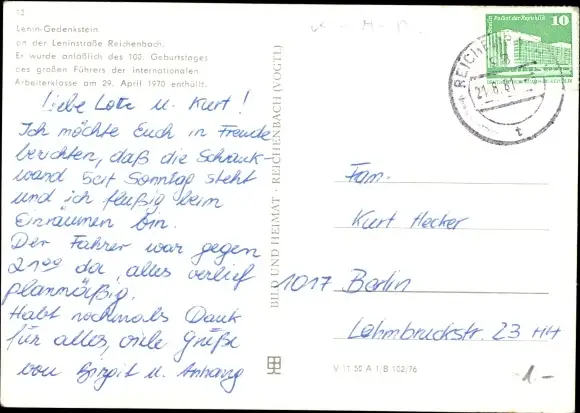 12
Lenin-Gedenkstein
an der Leninstraße Reichenbach.
Er wurde anläßlich des 100. Geburtstages
des großen Führers der internationalen
Arbeiterklasse am 29. April 1970 enthüllt.
Liebe Lotte u. Kurt!
Ich möchte Euch in Freude
berichten, daß die Schrank-
wand seit Sonntag steht
und ich fleißig beim
Einräumen bin.
Der Fahrer war gegen
21⁰⁰ da, alles verlief
planmäßig.
Habt nochmals Dank
für alles, viele Grüße
von Birgit u. Anhang
BILD UND HEIMAT · REICHENBACH (VOGTL)
Palast der Republik
10
REICHENB
21.8.81
t
Fam.
Kurt Hecker
1017 Berlin
Lehmbruckstr. 23 HH
V 11 50 A 1/B 102/76
-1-